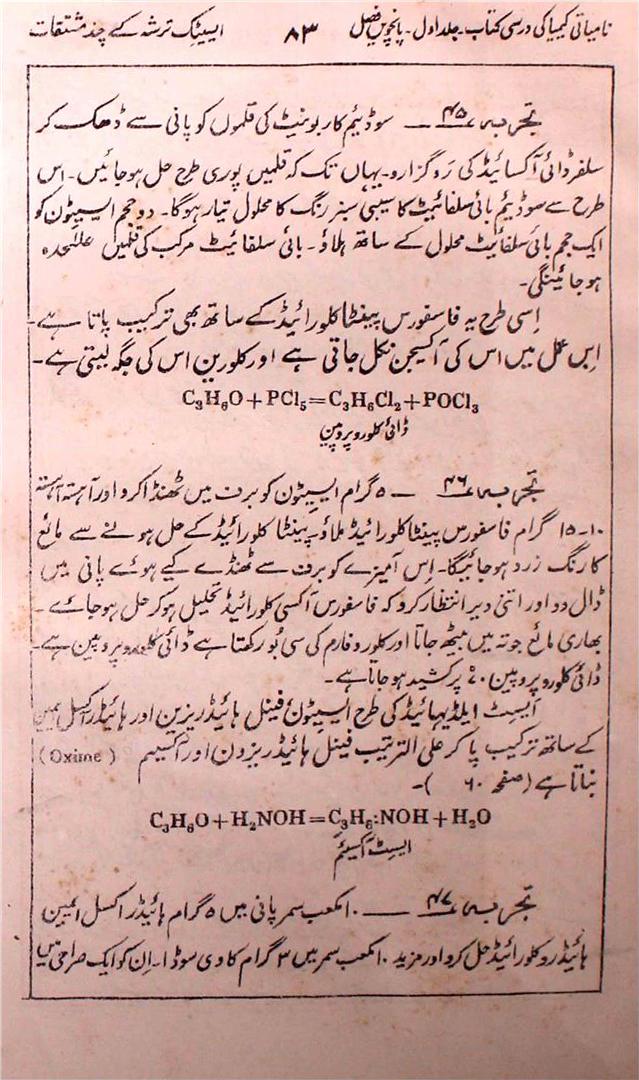 نامیاتی کیمیا کی درسی کتاب۔ جلد اول۔ پانچویں فصل ۸۳ ایسیٹک ترشہ کے چند مشتقات
تجربہ ۴۵ ــ سوڈیئم کاربونیٹ کی قلموں کو پانی سے ڈھک کر
سلفر ڈائی آکسائیڈ کی رَو گزارو۔ یہاں تک کہ قلمیں پوری طرح حل ہو جائیں۔ اس
طرح سے سوڈیئم بائی سلفائیٹ کا سیبی سبز رنگ کا محلول تیار ہوگا۔ دو حجم ایسیٹون کو
ایک حجم بائی سلفائیٹ محلول کے ساتھ ہلاؤ۔ بائی سلفائیٹ مرکب کی قلمیں علٰحدہ
ہو جائینگی۔
اِسی طرح یہ فاسفورس پینٹا کلورائیڈ کے ساتھ بھی ترکیب پاتا ہے۔
اِس عمل میں اس کی آکسیجن نکل جاتی ہے اور کلورین اس کی جگہ لیتی ہے۔
C₃H₆O + PCl₅ = C₃H₆Cl₂ + POCl₃
ڈائی کلورو پروپین
تجربہ ۴۶ ــ ۵ گرام ایسیٹون کو برف میں ٹھنڈا کرو اور آہستہ آہستہ
۱۰-۱۵ گرام فاسفورس پینٹا کلورائیڈ ملاؤ۔ پینٹا کلورائیڈ کے حل ہونے سے مائع
کا رنگ زرد ہو جائیگا۔ اِس آمیزے کو برف سے ٹھنڈے کیے ہوئے پانی میں
ڈال دو اور اتنی دیر انتظار کرو کہ فاسفورس آکسی کلورائیڈ تحلیل ہو کر حل ہو جائے۔
بھاری مائع جو تہ میں بیٹھ جاتا اور کلوروفارم کی سی بُو رکھتا ہے ڈائی کلورو پروپین ہے۔
ڈائی کلورو پروپین ۷۰° پر کشید ہو جاتا ہے۔
ایسٹ ایلڈیہائیڈ کی طرح ایسیٹون فینل ہائیڈریزین اور ہائیڈراکسل ایمین
کے ساتھ ترکیب پا کر علی الترتیب فینل ہائیڈریزون اور آکسیم (Oxime)
بناتا ہے (صفحہ ۶۰)۔
C₃H₆O + H₂NOH = C₃H₆:NOH + H₂O
ایسٹ آکسیئم
تجربہ ۴۷ ــ ۱۰ مکعب سمر پانی میں ۵ گرام ہائیڈراکسل ایمین
ہائیڈروکلورائیڈ حل کرو اور مزید ۱۰ مکعب سمر میں ۳ گرام کاوی سوڈا۔ اِن کو ایک صراحی میں